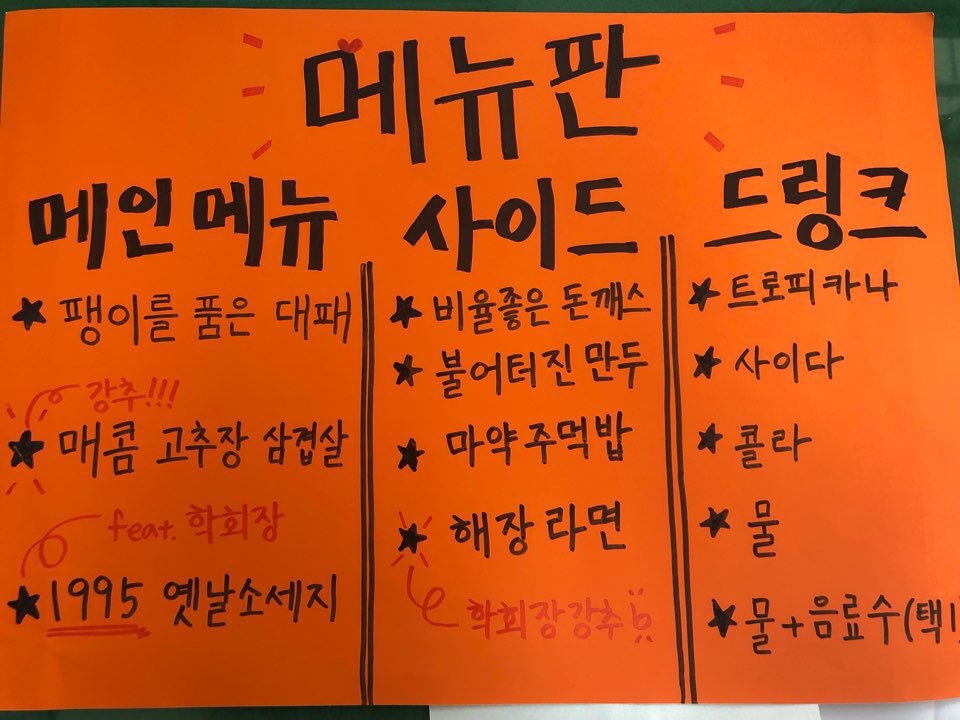 메뉴판
메인메뉴
★ 팽이를 품은 대패
강추!!!
★ 매콤 고추장 삼겹살
feat. 학회장
★ 1995 옛날소세지
사이드
★ 비율좋은 돈깨스
★ 불어터진 만두
★ 마약주먹밥
★ 해장라면
학회장강추
드링크
★ 트로피카나
★ 사이다
★ 콜라
★ 물
★ 물+음료수(택1